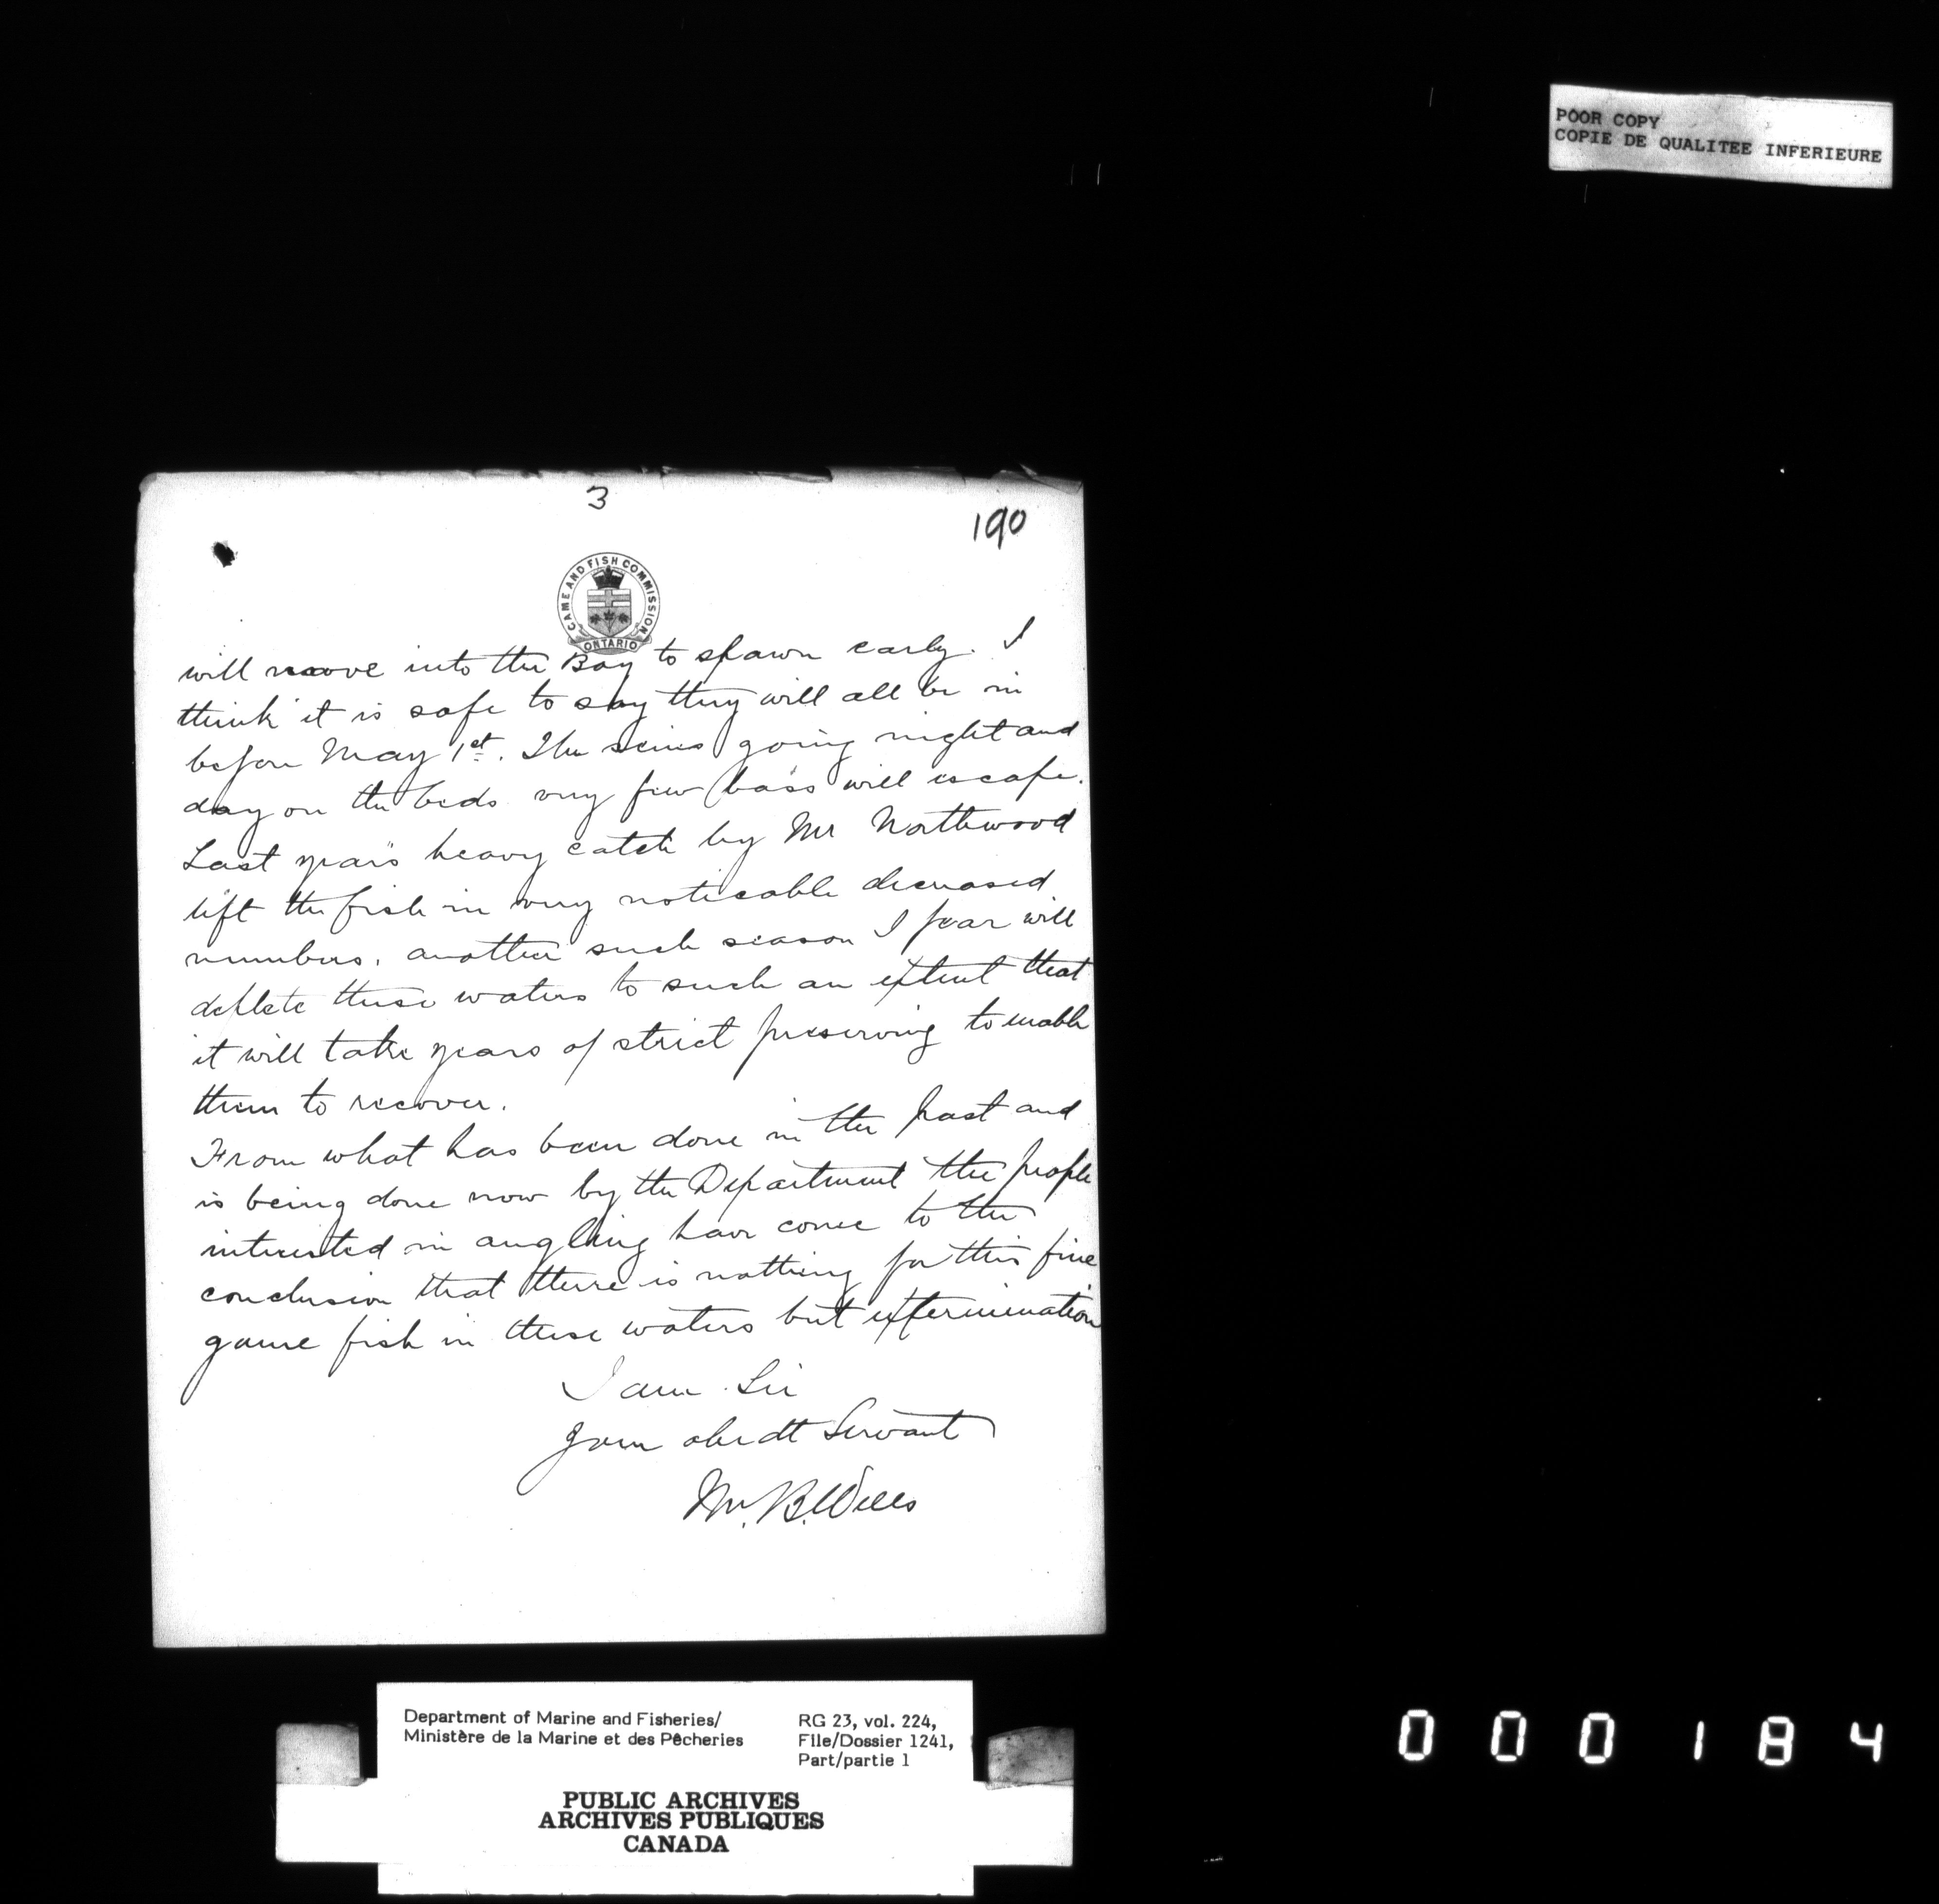 POOR COPY
COPIE DE QUALITEE INFERIEURE
3
190
GAME AND FISH COMMISSION
ONTARIO
will move into the Bay to spawn early. I
think it is safe to say they will all be in
before May 1st. The seines going night and
day on the beds very few bass will escape.
Last year's heavy catch by Mr Northwood
left the fish in very noticable decreased
numbers. another such season I fear will
deplete these waters to such an extent that
it will take years of strict preserving to enable
them to recover.
From what has been done in the past and
is being done now by the Department the people
interested in angling have come to the
conclusion that there is nothing for this fine
game fish in these waters but extermination
I am Sir
Your obedt Servant
Wm. B. Wells
Department of Marine and Fisheries/
Ministère de la Marine et des Pêcheries
RG 23, vol. 224,
File/Dossier 1241,
Part/partie 1
PUBLIC ARCHIVES
ARCHIVES PUBLIQUES
CANADA
000184